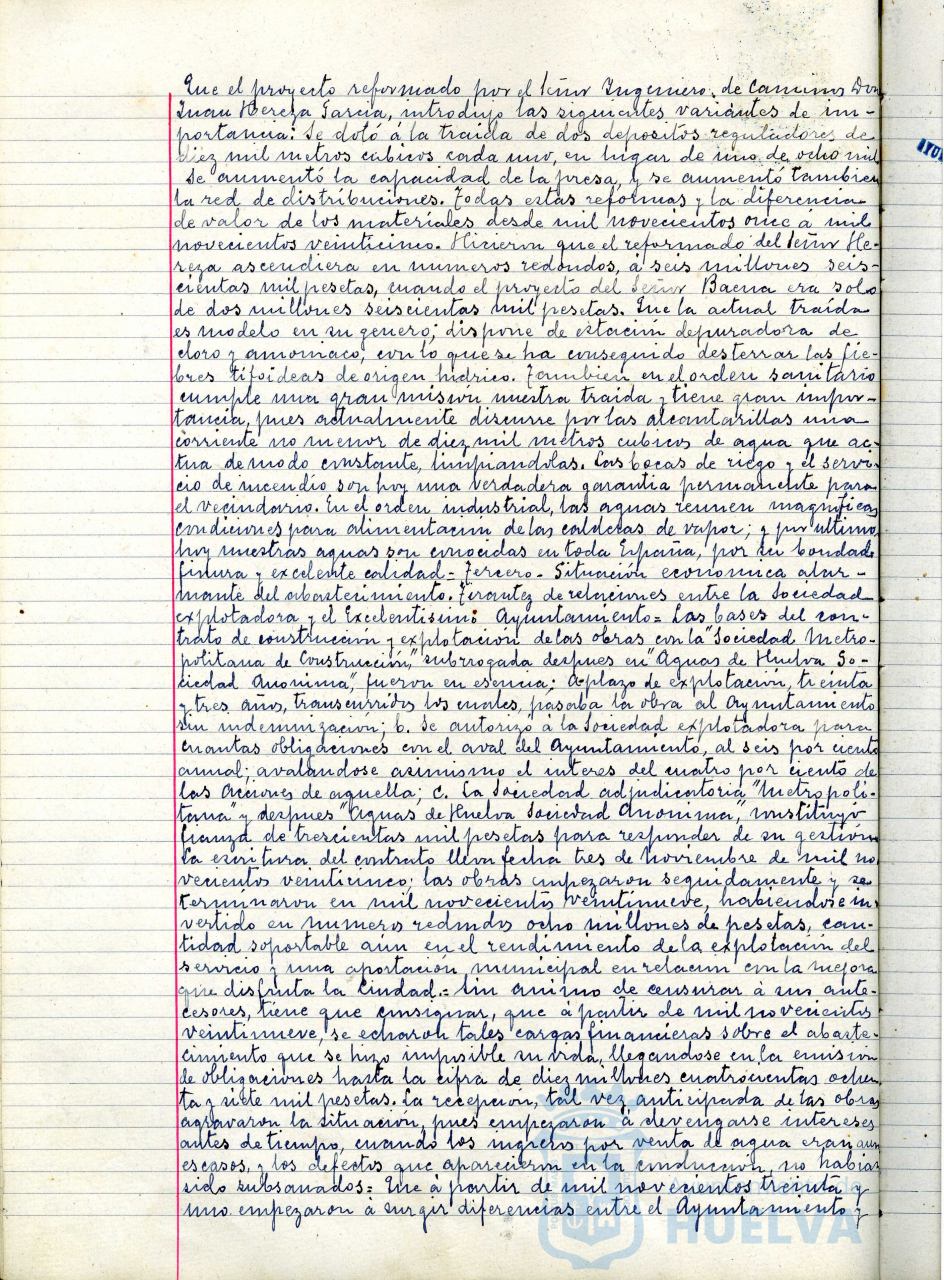 Que el proyecto reformado por el Señor Ingeniero de Caminos Don
Juan Hereza Garcia, introdujo las siguientes variantes de im-
portancia: Se dotó á la traida de dos depositos reguladores de
diez mil metros cubicos cada uno, en lugar de uno de ocho mil
Se aumentó la capacidad de la presa, y se aumentó tambien
la red de distribuciones. Todas estas reformas y la diferencia
de valor de los materiales desde mil novecientos once á mil
novecientos veinticinco. Hicieron que el reformado del Señor He-
reza ascendiera en numeros redondos, á seis millones seis-
cientas mil pesetas, cuando el proyecto del Señor Baena era solo
de dos millones seiscientas mil pesetas. Que la actual traida
es modelo en su genero; dispone de estación depuradora de
cloro y amoniaco, con lo que se ha conseguido desterrar las fie-
bres tifoideas de origen hidrico. Tambien en el orden sanitario
cumple una gran misión nuestra traida y tiene gran impor-
tancia, pues actualmente discurre por las alcantarillas una
corriente no menor de diez mil metros cubicos de agua que ac-
tua de modo constante, limpiandolas. Las bocas de riego y el servi-
cio de incendio son hoy una verdadera garantia permanente para
el vecindario. En el orden industrial, las aguas reunen magnificas
condiciones para alimentación de las calderas de vapor; y por ultimo,
hoy nuestras aguas son conocidas en toda España, por su bondad
finura y excelente calidad = Tercero - Situación economica alar-
mante del abastecimiento. Tirantez de relaciones entre la Sociedad
explotadora y el Excelentisimo Ayuntamiento = Las bases del con-
trato de construcción y explotacion de las obras con la "Sociedad Metro-
politana de Construcción", subrogada despues en "Aguas de Huelva So-
ciedad Anonima", fueron en esencia: a plazo de explotación, treinta
y tres años, transcurridos los cuales, pasaba la obra al Ayuntamiento
sin indemnización; b. Se autorizó á la Sociedad explotadora para
cuantas obligaciones con el aval del Ayuntamiento, al seis por ciento
annal; avalandose asimismo el interes del cuatro por ciento de
las Acciones de aquella; c. La Sociedad adjudicatoria "Metropoli-
tana" y despues "Aguas de Huelva Sociedad Anonima", constituyó
fianza de trescientas mil pesetas para responder de su gestión
La escritura del contrato lleva fecha tres de Noviembre de mil no
vecientos veinticinco; las obras empezaron seguidamente y se
terminaron en mil novecientos veintinueve, habiendose in-
vertido en numeros redondos ocho millones de pesetas, can-
tidad soportable aún en el rendimiento de la explotación del
servicio y una aportación municipal en relacion con la mejora
que disfruta la Ciudad = Sin animo de censurar á sus ante-
cesores, tiene que consignar, que á partir de mil novecientos
veintinueve, se echaron tales cargas financieras sobre el abaste-
cimiento que se hizo imposible su vida, llegandose en la emision
de obligaciones hasta la cifra de diez millones cuatrocientas ochen
ta y siete mil pesetas. La recepción, tal vez anticipada de las obras
agravaron la situación, pues empezaron á devengarse intereses
antes de tiempo, cuando los ingresos por venta de agua eran aun
escasos, y los defectos que aparecieron en la conducción, no habian
sido subsanados = Que á partir de mil novecientos treinta y
uno empezaron á surgir diferencias entre el Ayuntamiento y
HUELVA